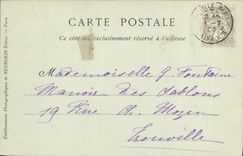 CARTE POSTALE
Ce côté est exclusivement réservé à l'adresse
Etablissements Photographiques de NEURDEIN Frères. — Paris
Mademoiselle G Fontaine
Manoir des Sablons
19 Rue Ch. Mozin
Trouville